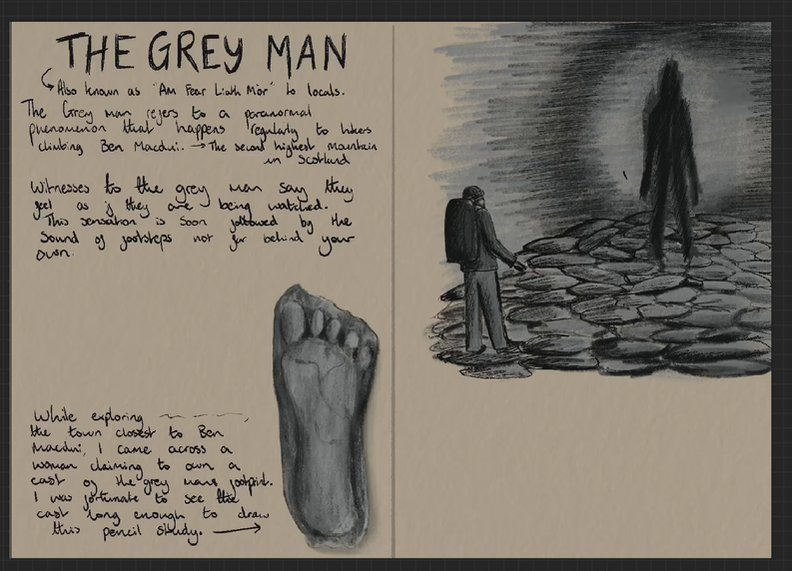 THE GREY MAN
Also known as "Am Fear Liath Mòr" to locals.
The Grey man refers to a paranormal
phenomenon that happens regularly to hikers
climbing Ben Macdui. → The second highest mountain
in Scotland
Witnesses to the grey man say they
feel as if they are being watched.
This sensation is soon followed by the
sound of footsteps not far behind your
own.
While exploring
the town closest to Ben
Macdui, I came across a
woman claiming to own a
cast of the grey mans footprint.
I was fortunate to see the
cast long enough to draw
this pencil study.